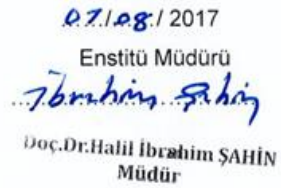 07/08/2017
Enstitü Müdürü
İbrahim Şahin
Doç.Dr.Halil İbrahim ŞAHİN
Müdür